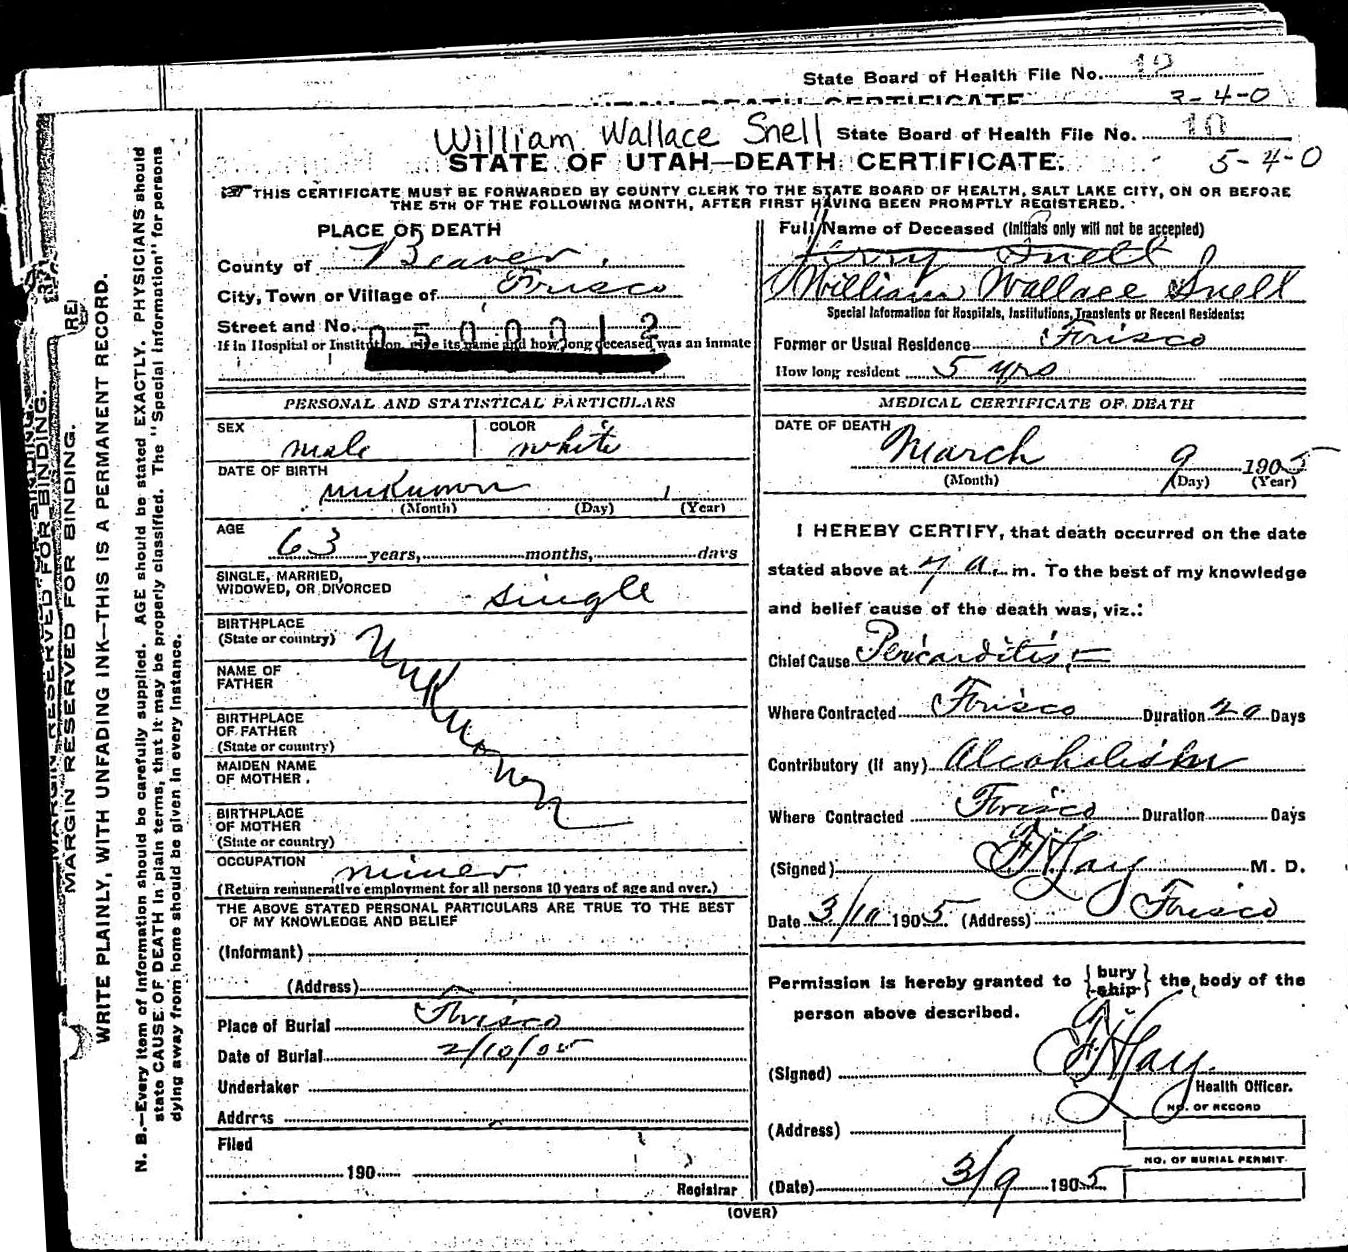 State Board of Health File No. 12
3-4-0
UTAH—DEATH CERTIFICATE
William Wallace Snell State Board of Health File No. 10
STATE OF UTAH—DEATH CERTIFICATE. 5-4-0
THIS CERTIFICATE MUST BE FORWARDED BY COUNTY CLERK TO THE STATE BOARD OF HEALTH, SALT LAKE CITY, ON OR BEFORE
THE 5TH OF THE FOLLOWING MONTH, AFTER FIRST HAVING BEEN PROMPTLY REGISTERED.
PLACE OF DEATH
County of Beaver
City, Town or Village of Frisco
Street and No. 0500012
If in Hospital or Institution, give its name and how long deceased was an inmate
PERSONAL AND STATISTICAL PARTICULARS
SEX male COLOR white
DATE OF BIRTH
unknown
(Month) (Day) (Year)
AGE
63 years, months, days
SINGLE, MARRIED,
WIDOWED, OR DIVORCED single
BIRTHPLACE
(State or country)
NAME OF
FATHER
Unknown
BIRTHPLACE
OF FATHER
(State or country)
MAIDEN NAME
OF MOTHER.
BIRTHPLACE
OF MOTHER
(State or country)
OCCUPATION miner
(Return remunerative employment for all persons 10 years of age and over.)
THE ABOVE STATED PERSONAL PARTICULARS ARE TRUE TO THE BEST
OF MY KNOWLEDGE AND BELIEF
(Informant)
(Address)
Place of Burial Frisco
Date of Burial 2/10/05
Undertaker
Address
Filed
190
Registrar
Full Name of Deceased (Initials only will not be accepted)
Snell
William Wallace Snell
Special Information for Hospitals, Institutions, Transients or Recent Residents:
Former or Usual Residence Frisco
How long resident 5 yrs
MEDICAL CERTIFICATE OF DEATH
DATE OF DEATH
March 9 1905
(Month) (Day) (Year)
I HEREBY CERTIFY, that death occurred on the date
stated above at 7 a. m. To the best of my knowledge
and belief cause of the death was, viz.:
Chief Cause Pericarditis,
Where Contracted Frisco Duration 20 Days
Contributory (if any) Alcoholism
Where Contracted Frisco Duration Days
(Signed) M. D.
Date 3/10 1905 (Address) Frisco
Permission is hereby granted to {bury ship} the body of the
person above described.
(Signed)
Health Officer.
NO. OF RECORD
(Address)
NO. OF BURIAL PERMIT
(Date) 3/9 1905
(OVER)
MARGIN RESERVED FOR BINDING.
WRITE PLAINLY, WITH UNFADING INK—THIS IS A PERMANENT RECORD.
N. B.—Every item of information should be carefully supplied. AGE should be stated EXACTLY. PHYSICIANS should
state CAUSE OF DEATH in plain terms, that it may be properly classified. The "Special Information" for persons
dying away from home should be given in every instance.